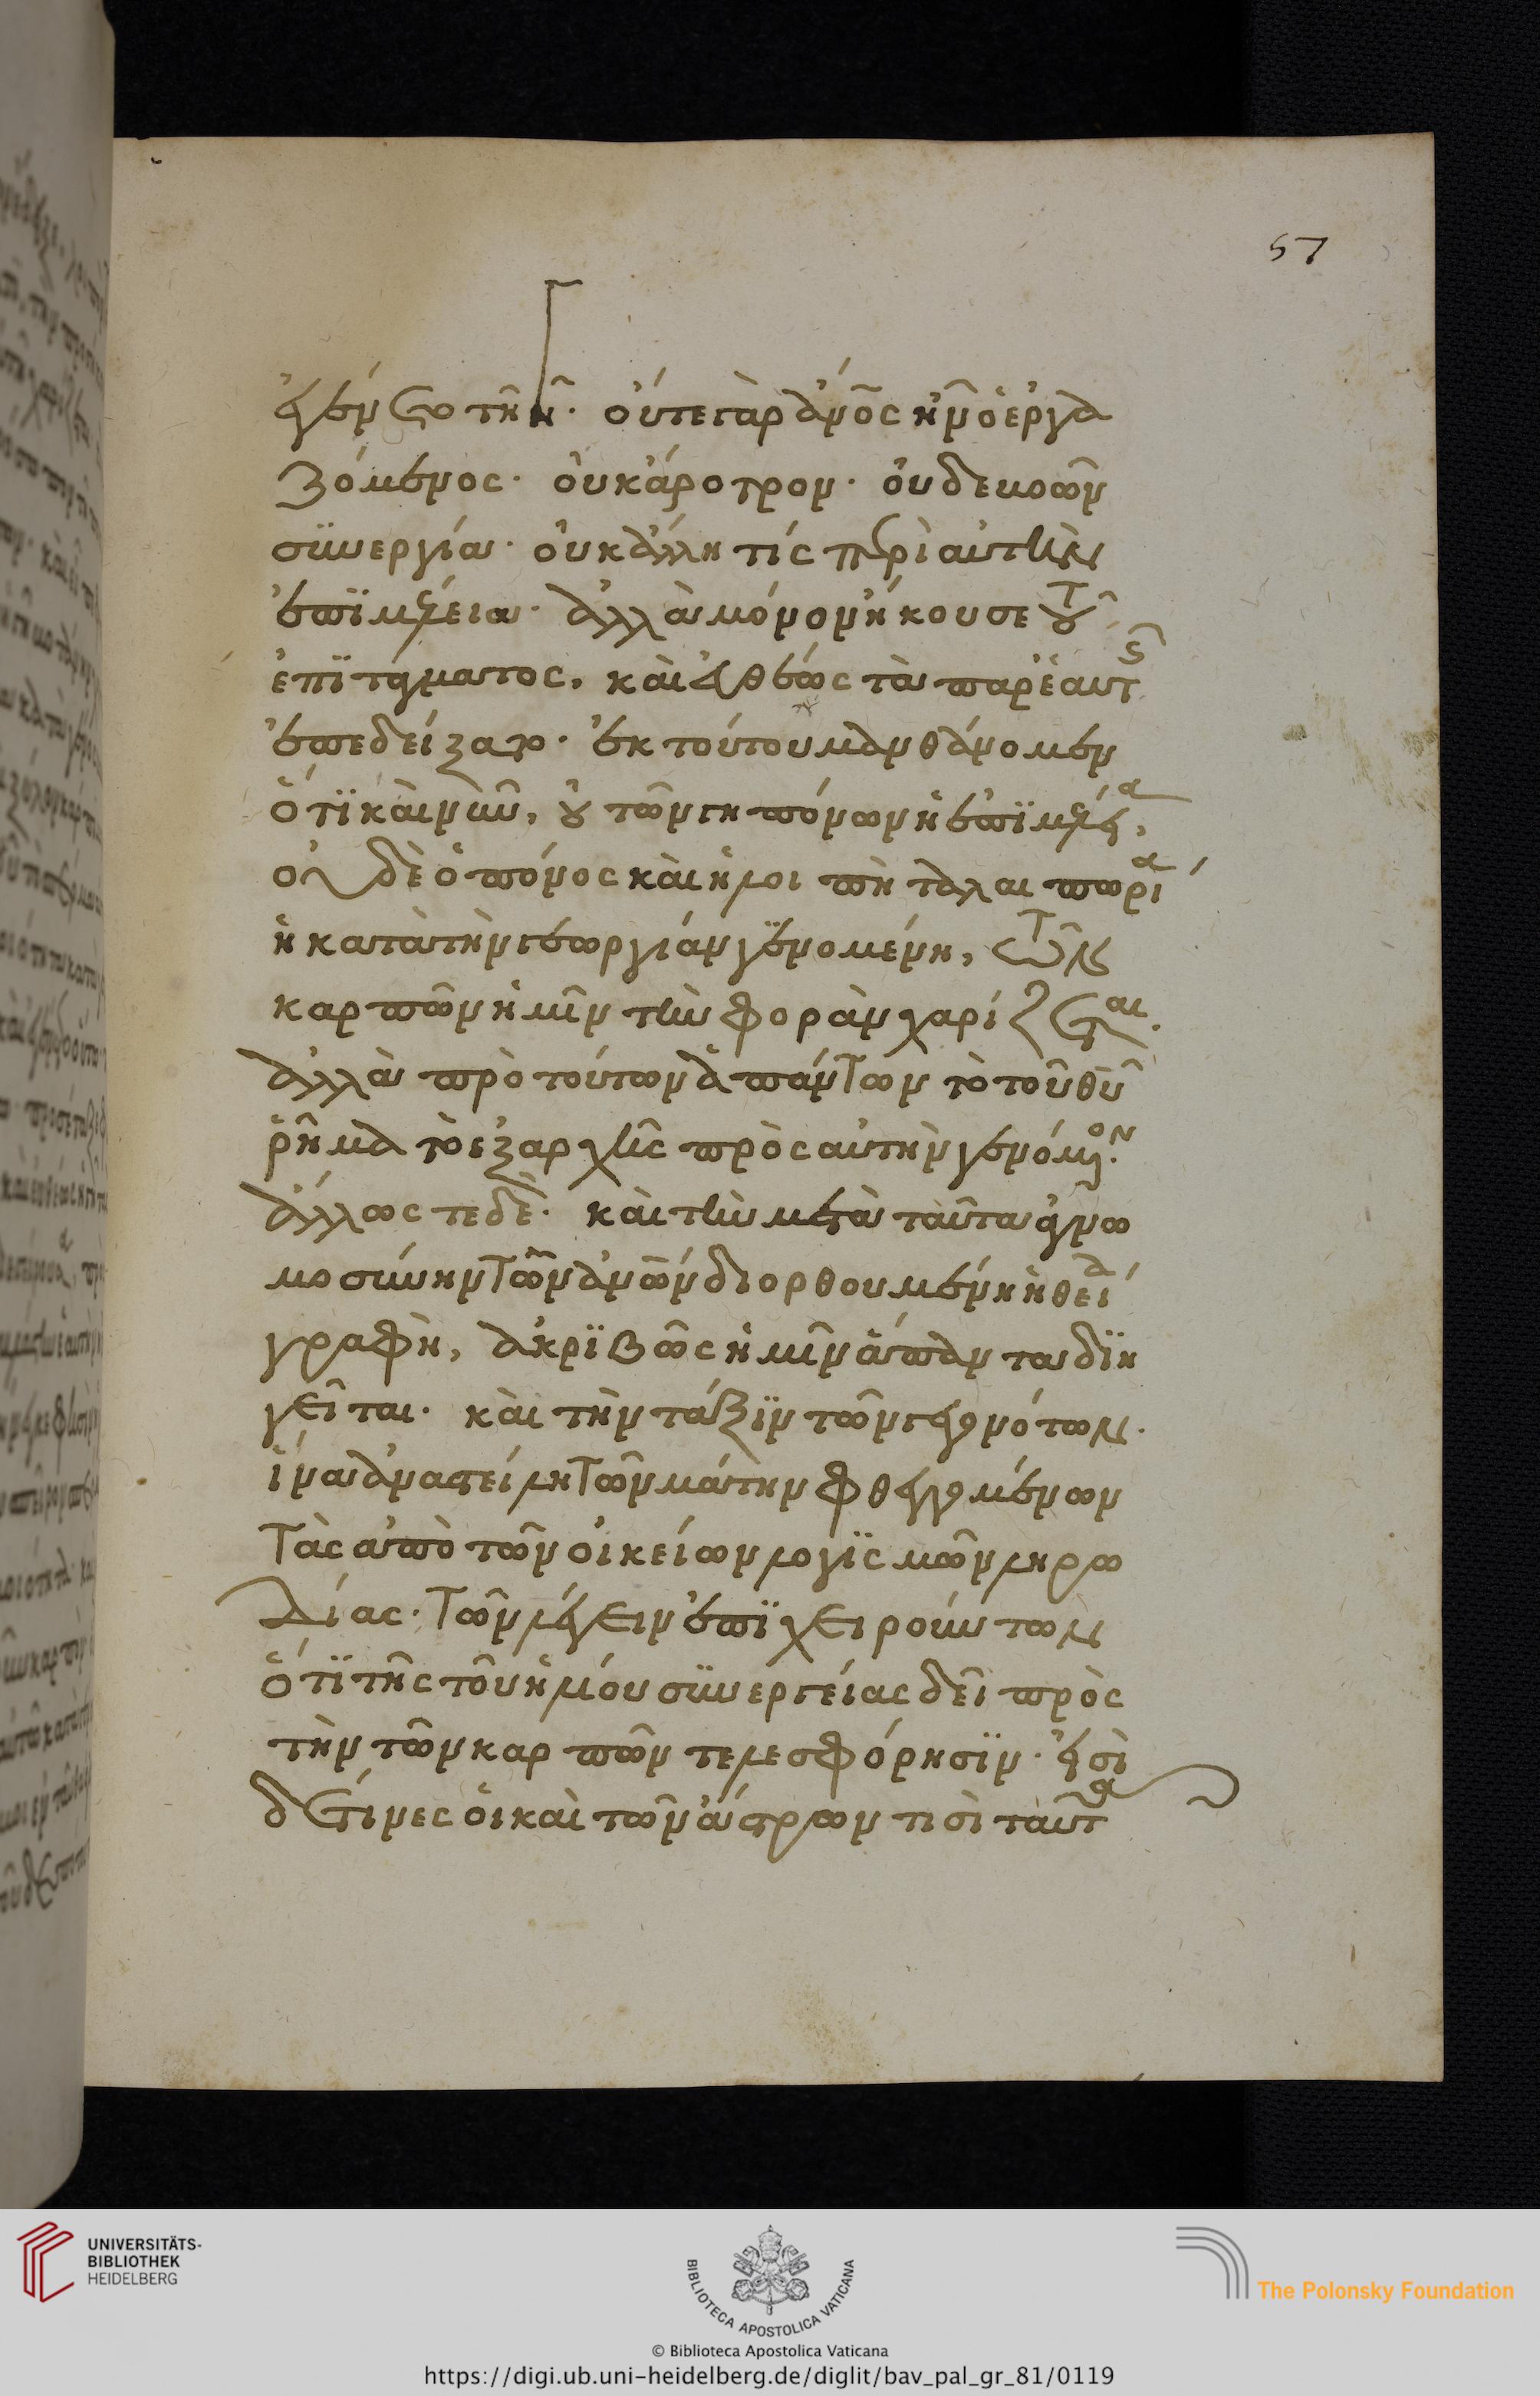 57
ἐγένετο τῆ γῆ. οὔτε γὰρ ἄνος ἦν ὁ ἐργα
ζόμενος. οὐκ ἄροτρον. οὐδὲ βοῶν
συνεργία. οὐκ ἄλλη τίς περὶ αὐτὴν
ἐπϊμέλεια. ἀλλὰ μόνον ἤκουσε τοῦ
ἐπϊτάγματος, καὶ εὐθέως τὰ παρ' ἑαυτῆς
ἐπεδείξατο. ἐκ τούτου μανθάνομεν
ὅτϊ καὶ νῦν, οὐ τῶν γηπόνων ἡ ἐπϊμέλεια,
οὐδὲ ὁ πόνος καὶ ἡ λοιπὴ ταλαιπωρία
ἡ κατὰ τὴν γεωργίαν γϊνομένη, τῶν
καρπῶν ἡμῖν τὴν φορὰν χαρίζεται.
ἀλλὰ πρὸ τούτων ἁπάντων τὸ τοῦ θυ
ῥῆμα τὸ ἐξαρχῆς πρὸς αὐτὴν γενόμενον.
ἄλλως τε δὲ. καὶ τὴν μετὰ ταῦτα ἀγνω
μοσύνην τῶν ἀνων διορθουμένη ἡ θεία
γραφὴ, ἀκρϊβῶς ἡμῖν ἅπαντα δϊη
γεῖται. καὶ τὴν τάξϊν τῶν γεγονότων.
ἵνα ἀναστείλη τῶν μάτην φθεγγομένων
τὰς ἀπὸ τῶν οἰκείων λογϊσμῶν ληρω
δίας. τῶν λέγειν ἐπϊχειρούντων
ὅτϊ τῆς τοῦ ἡλίου συνεργείας δεῖ πρὸς
τὴν τῶν καρπῶν τελεσφόρησϊν. εἰσὶ
δέ τινες οἱ καὶ τῶν ἄστρων τισὶ ταῦτα
UNIVERSITÄTS-
BIBLIOTHEK
HEIDELBERG
BIBLIOTECA APOSTOLICA VATICANA
The Polonsky Foundation
© Biblioteca Apostolica Vaticana
https://digi.ub.uni-heidelberg.de/diglit/bav_pal_gr_81/0119